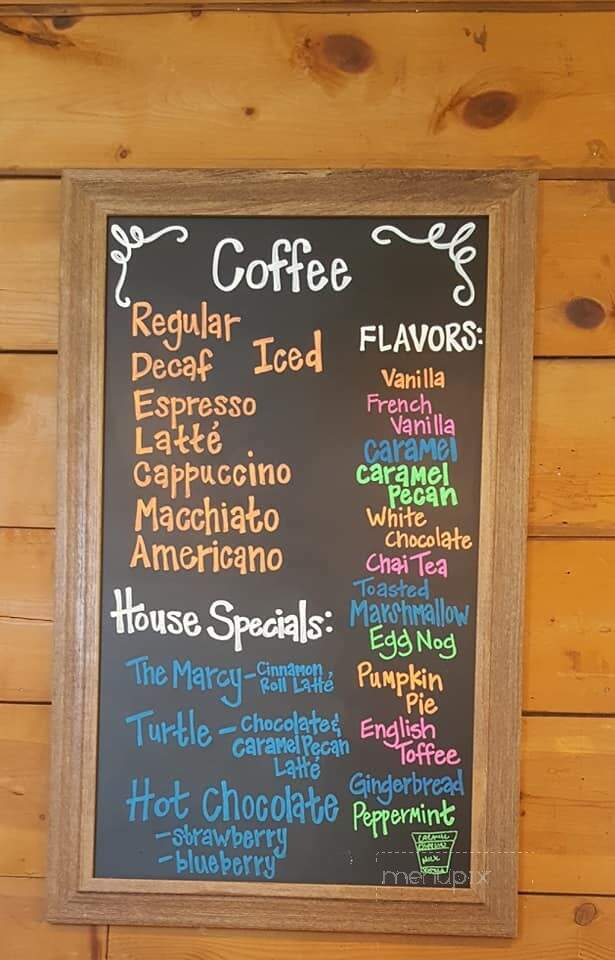 Coffee
Regular
Decaf
Iced
Espresso
Latté
Cappuccino
Macchiato
Americano
House Specials:
The Marcy - Cinnamon
Roll Latté
Turtle - Chocolate &
Caramel Pecan
Latté
Hot Chocolate
- strawberry
- blueberry
FLAVORS:
Vanilla
French
Vanilla
Caramel
Caramel
Pecan
White
Chocolate
Chai Tea
Toasted
Marshmallow
Egg Nog
Pumpkin
Pie
English
Toffee
Gingerbread
Peppermint
menupix